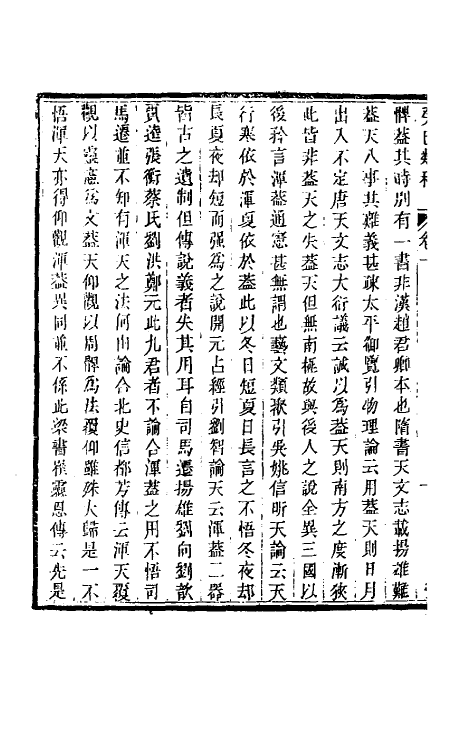 癸巳類稿　卷一
髀葢其時別有一書非漢趙君卿本也隋書天文志載揚雄難
葢天八事其難義甚疎太平御覽引物理論云用葢天則日月
出入不定唐天文志大衍議云誠以爲葢天則南方之度漸狹
此皆非葢天之失葢天但無南極故與後人之說全異三國以
後矜言渾葢通憲甚無謂也藝文類聚引吳姚信昕天論云天
行寒依於渾夏依於葢此以冬日短夏日長言之不悟冬夜却
長夏夜却短而强爲之說開元占經引劉智論天云渾葢二器
皆古之遺制但傳說義者失其用耳自司馬遷揚雄劉向劉歆
賈逵張衡蔡氏劉洪鄭元此九君者不論合渾葢之用不悟司
馬遷並不知有渾天之法何由論合北史信都芳傳云渾天覆
觀以靈憲爲文葢天仰觀以周髀爲法覆仰雖殊大歸是一不
悟渾天亦得仰觀渾葢異同並不係此梁書崔靈恩傳云先是